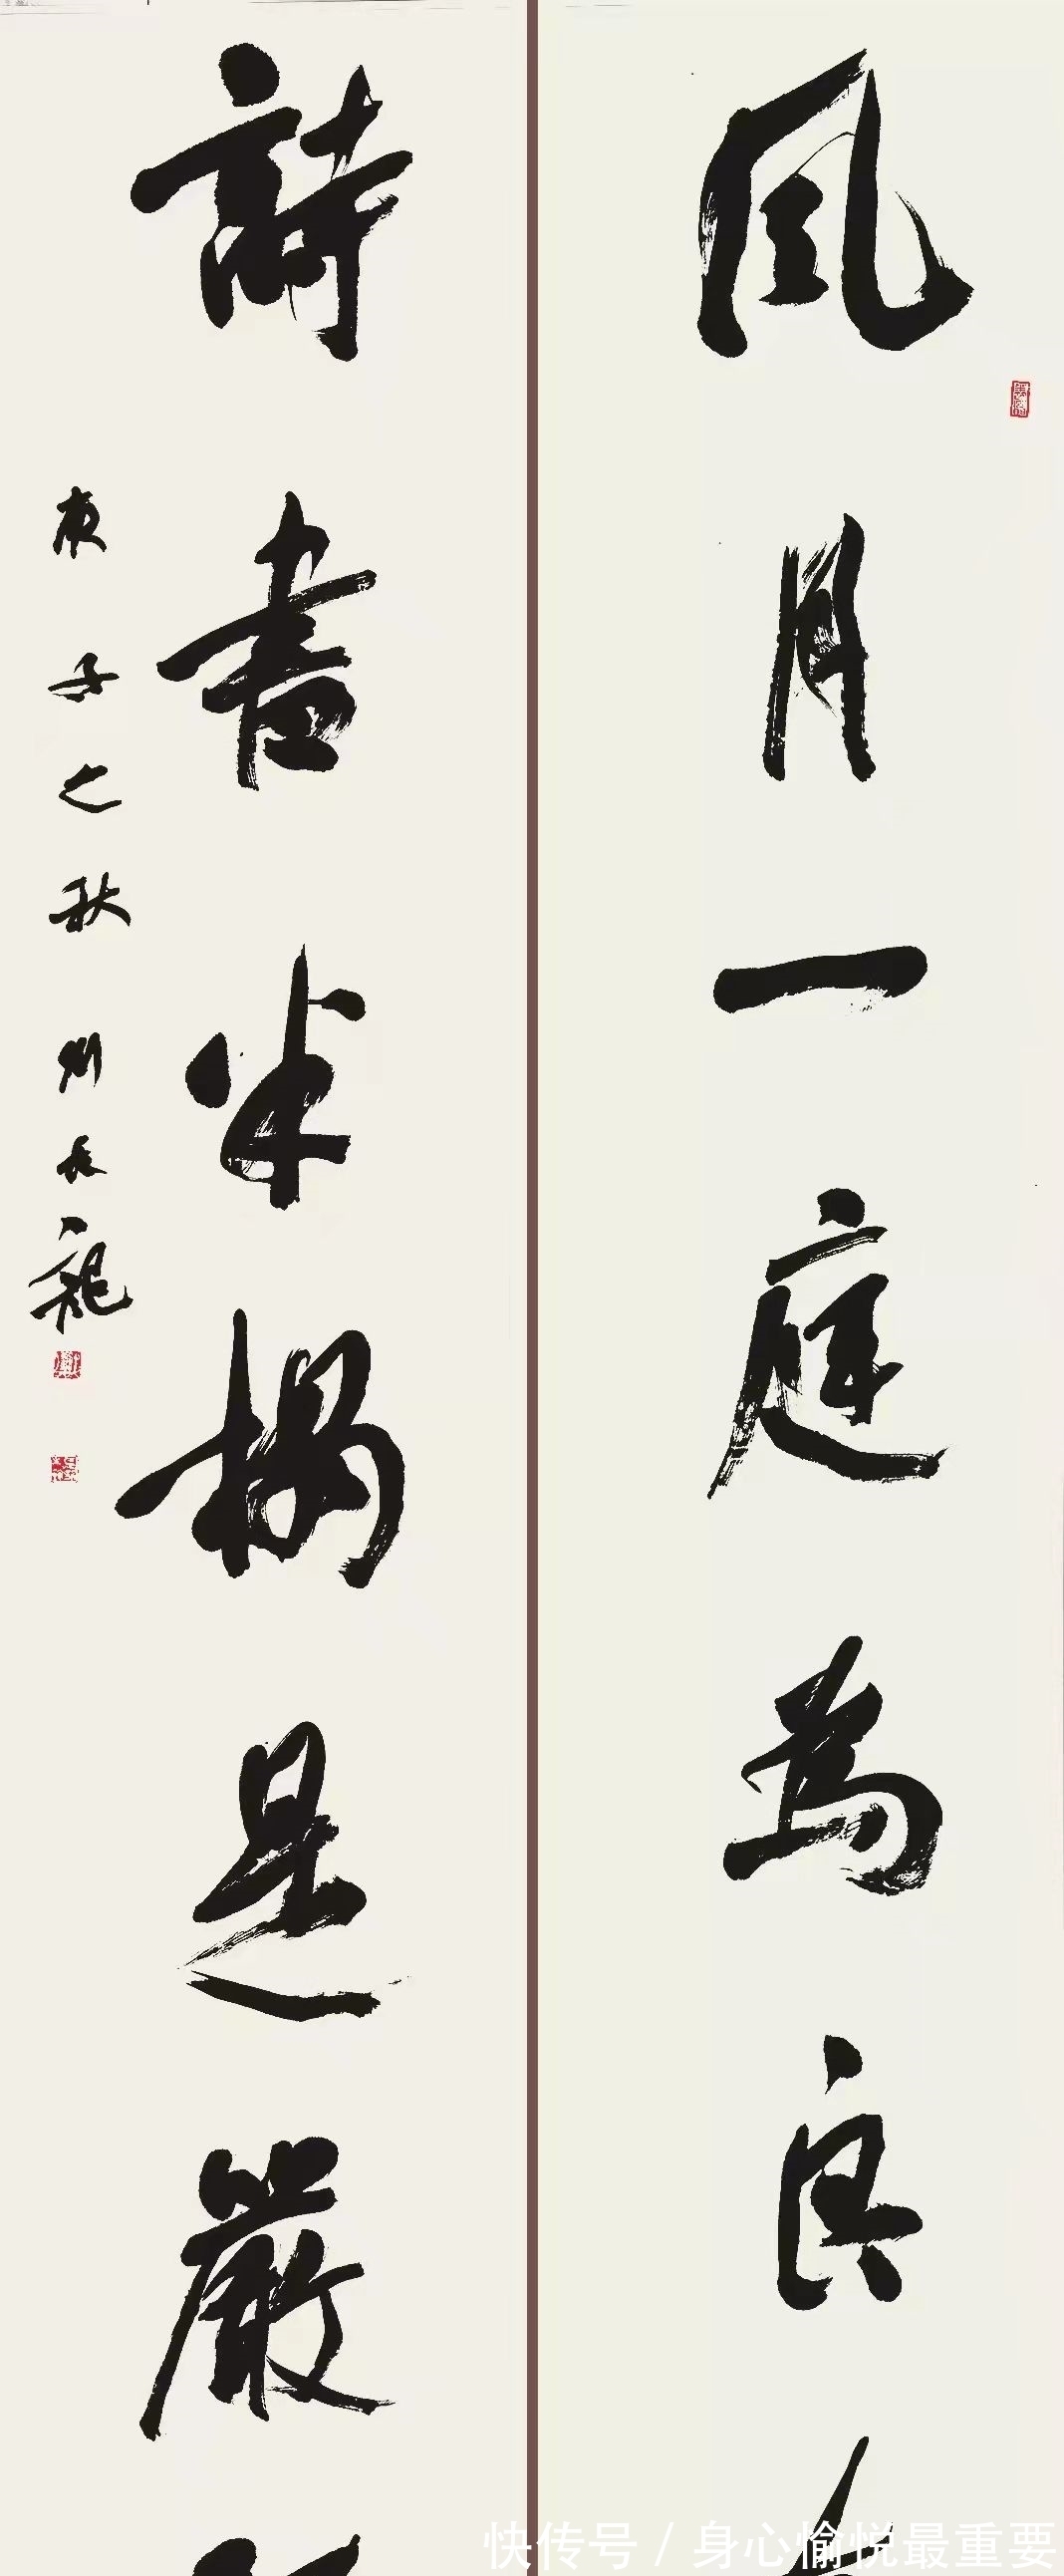 风月一庭为良
诗书半榻是严
庚子之秋 刘长龙
快传号 / 身心愉悦最重要